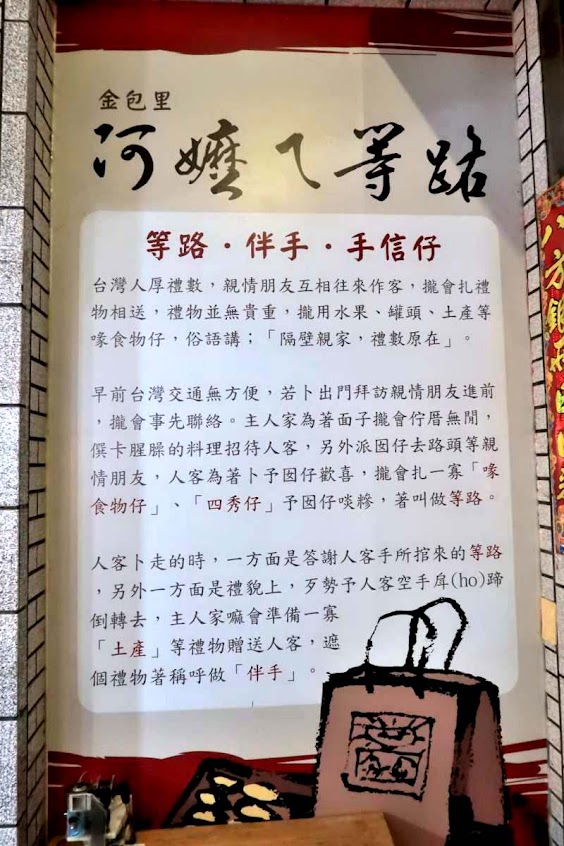 金包里
阿嬤ㄟ等路
等路・伴手・手信仔
台灣人厚禮數，親情朋友互相往來作客，攏會扎禮
物相送，禮物並無貴重，攏用水果、罐頭、土產等
喙食物仔，俗語講；「隔壁親家，禮數原在」。
早前台灣交通無方便，若卜出門拜訪親情朋友進前
，攏會事先聯絡。主人家為著面子攏會佇厝無閒，
僎卡腥臊的料理招待人客，另外派囡仔去路頭等親
情朋友，人客為著卜予囡仔歡喜，攏會扎一寡「喙
食物仔」、「四秀仔」予囡仔啖糝，著叫做等路。
人客卜走的時，一方面是答謝人客手所捾來的等路
，另外一方面是禮貌上，歹勢予人客空手戽(ho)蹄
倒轉去，主人家嘛會準備一寡
「土產」等禮物贈送人客，遮
個禮物著稱呼做「伴手」。
八方